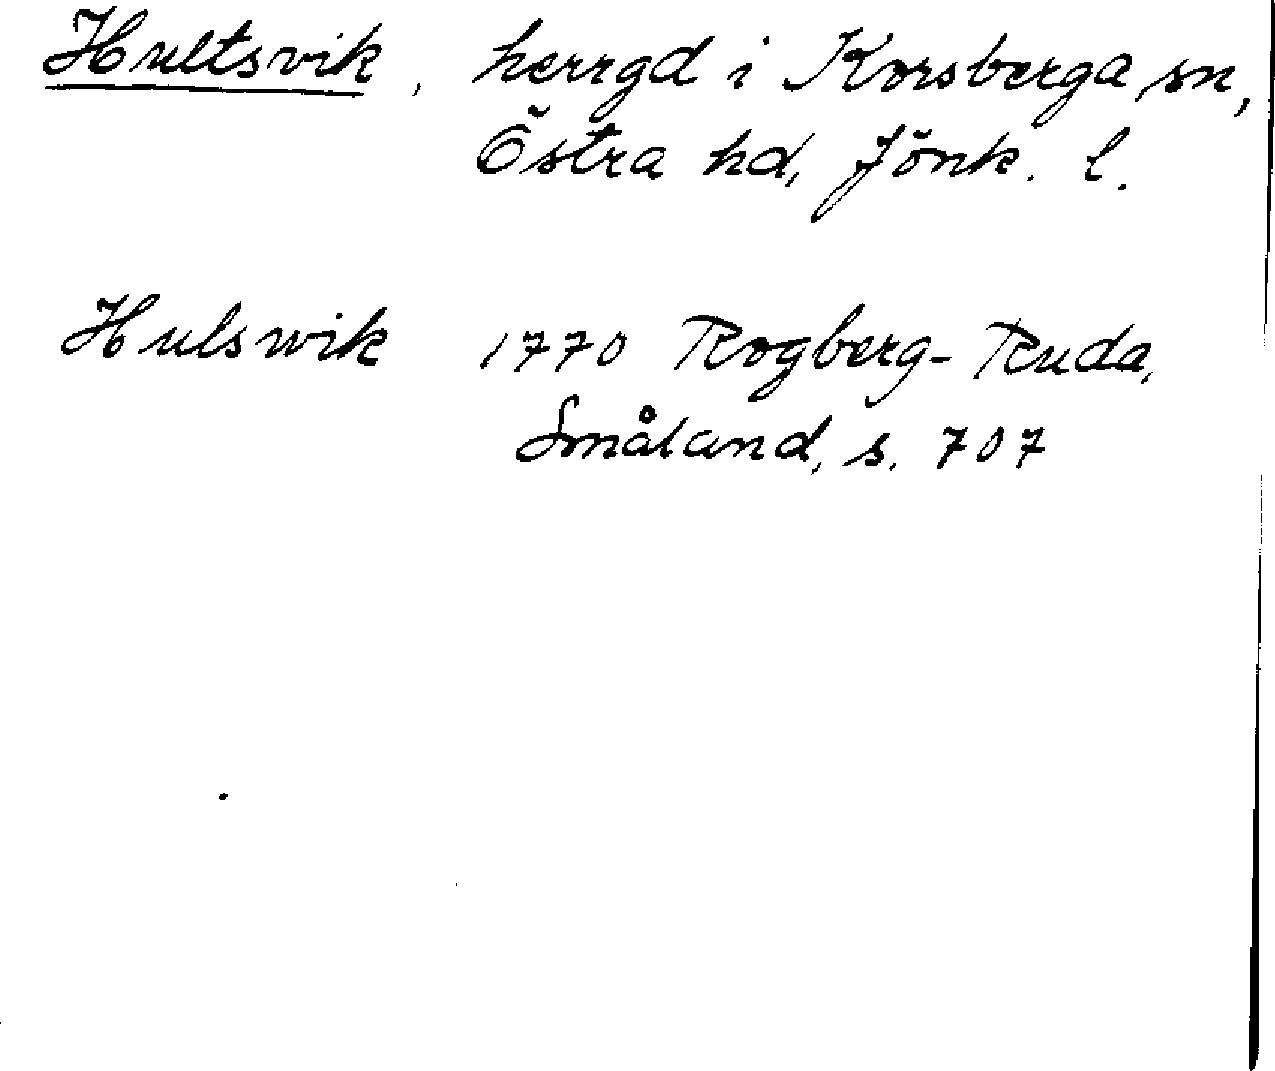 Hultsvik, herrgd i Korsberga sn,
Östra hd, Jönk. l.
Hulswik 1770 Rogberg-Ruda,
Småland, s. 707